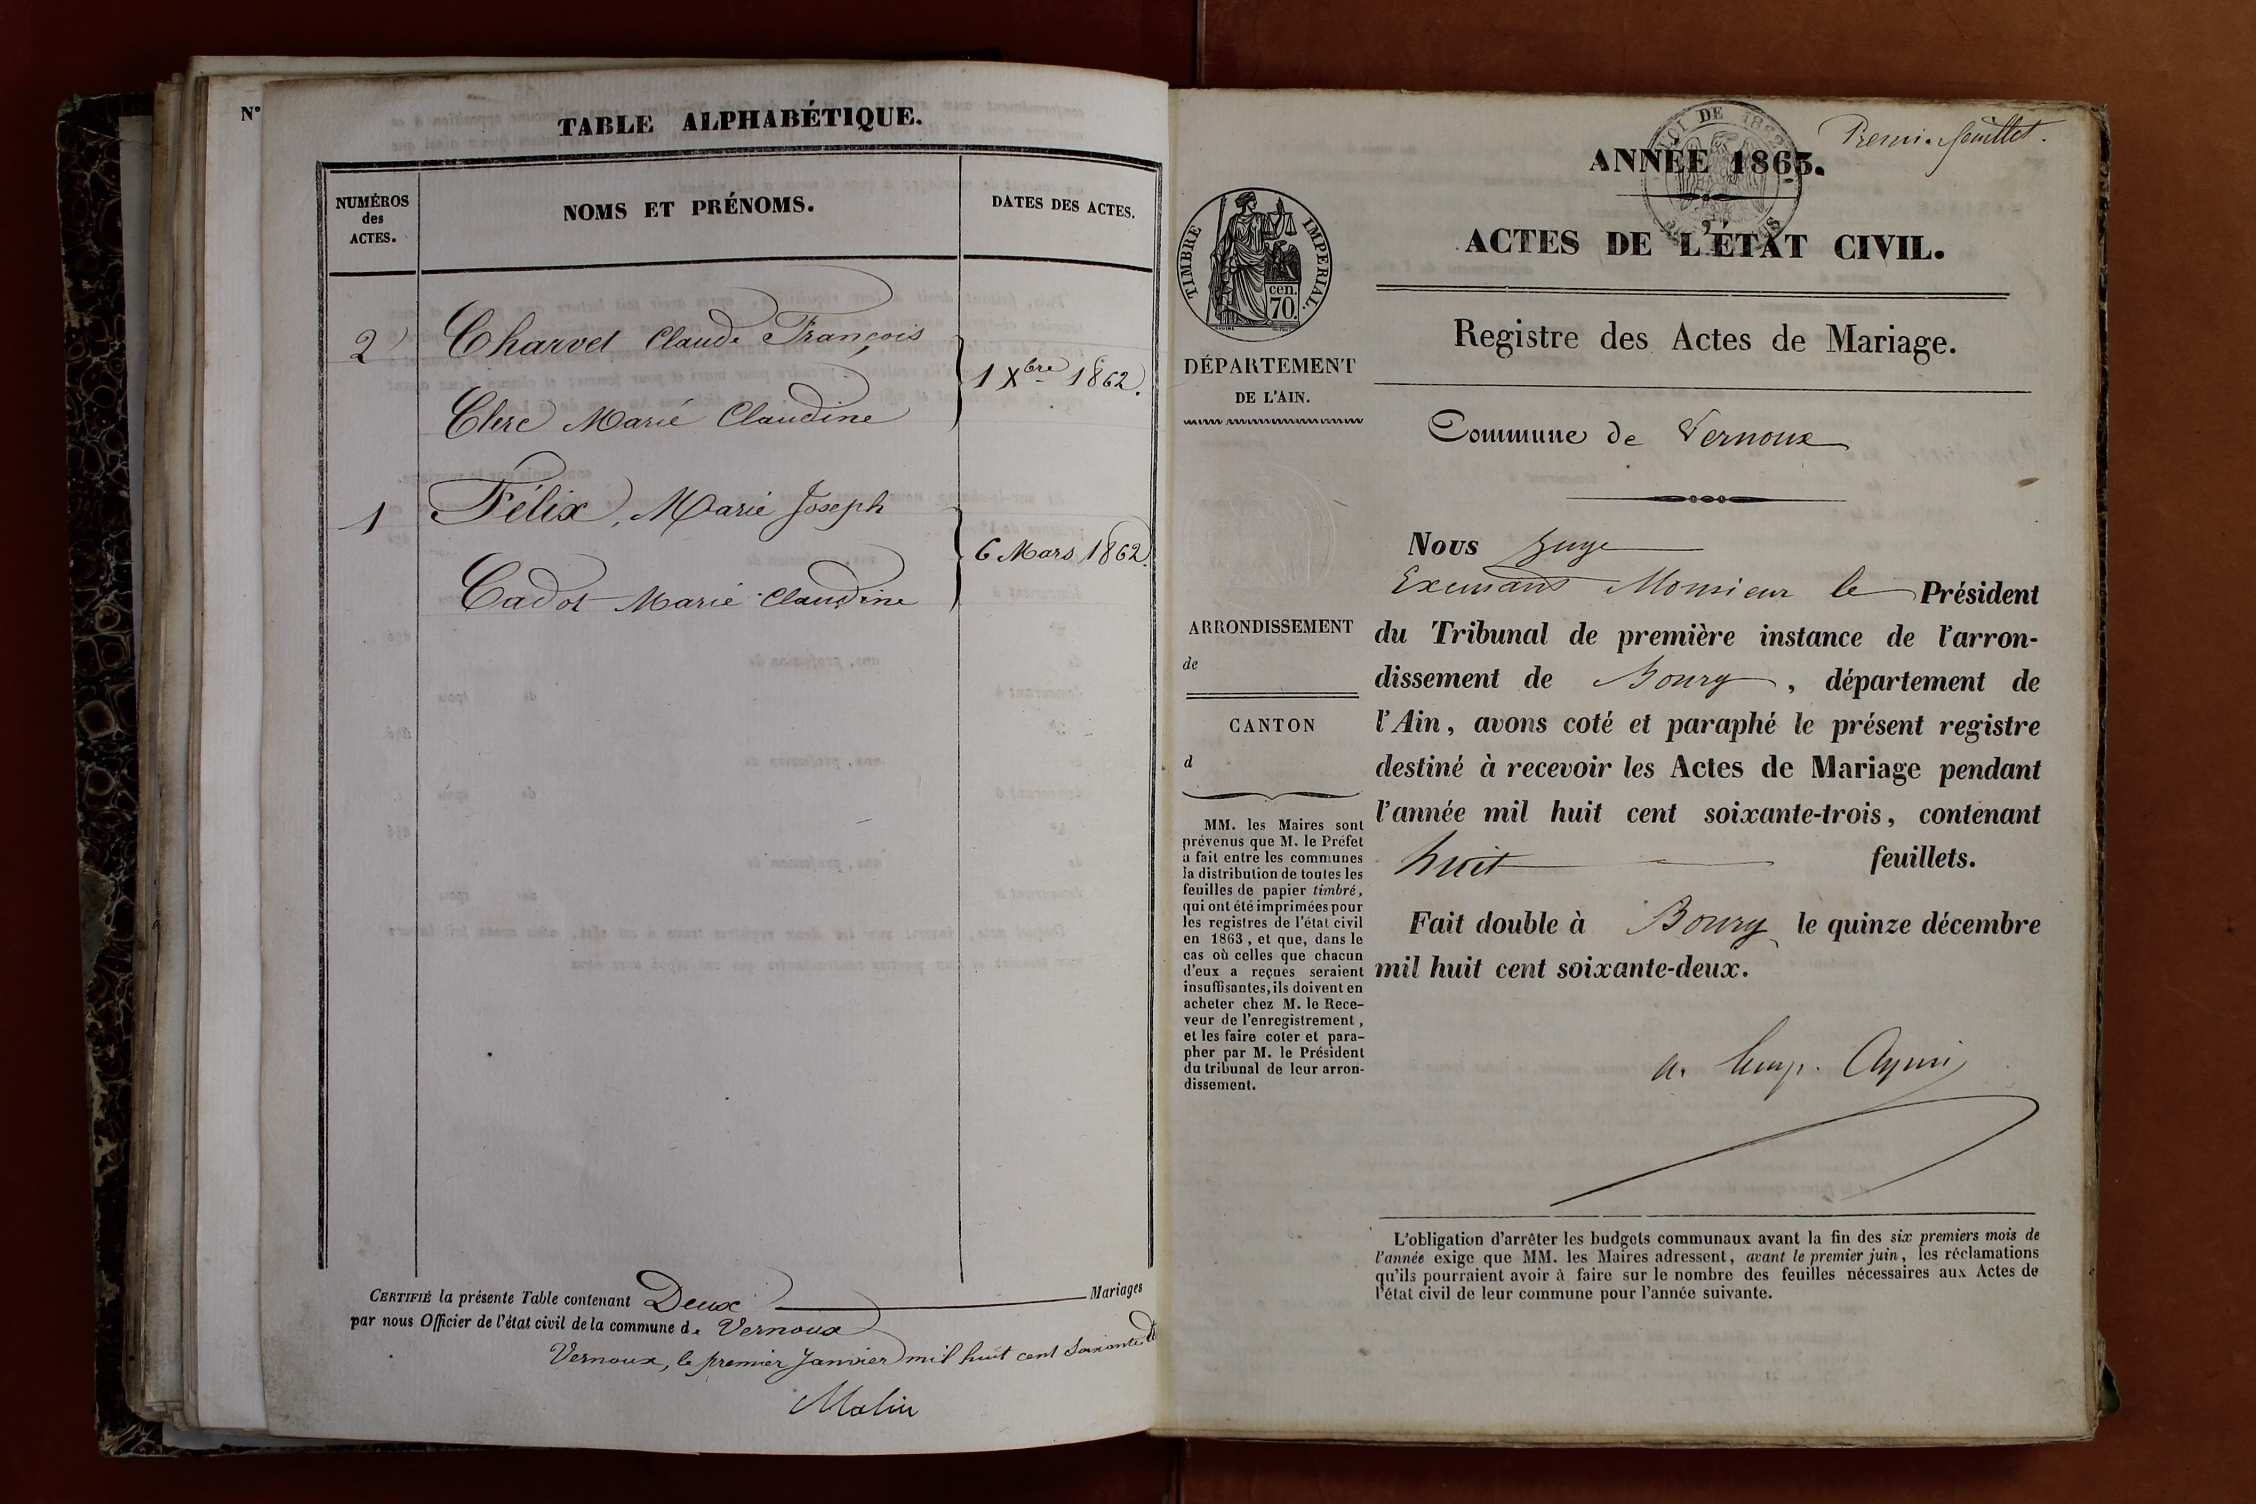 N°
TABLE ALPHABÉTIQUE.
NUMÉROS
des
ACTES.
NOMS ET PRÉNOMS.
DATES DES ACTES.
2
Charvet Claude François
1 Xbre 1862.
Clerc Marie Claudine
1
Félix, Marie Joseph
6 Mars 1862.
Cadot Marie Claudine
CERTIFIÉ la présente Table contenant Deux Mariages
par nous Officier de l'état civil de la commune de Vernoux
Vernoux, le premier Janvier mil huit cent soixante
Premier feuillet.
LOI DE 1862
ANNÉE 1863.
ACTES DE L'ÉTAT CIVIL.
Registre des Actes de Mariage.
TIMBRE IMPÉRIAL.
cen.
70.
DÉPARTEMENT
DE L'AIN.
ARRONDISSEMENT
de
CANTON
d
MM. les Maires sont
prévenus que M. le Préfet
a fait entre les communes
la distribution de toutes les
feuilles de papier timbré,
qui ont été imprimées pour
les registres de l'état civil
en 1863, et que, dans le
cas où celles que chacun
d'eux a reçues seraient
insuffisantes, ils doivent en
acheter chez M. le Rece-
veur de l'enregistrement,
et les faire coter et para-
pher par M. le Président
du tribunal de leur arron-
dissement.
Commune de Vernoux
Nous Juge
Monsieur le Président
du Tribunal de première instance de l'arron-
dissement de Bourg, département de
l'Ain, avons coté et paraphé le présent registre
destiné à recevoir les Actes de Mariage pendant
l'année mil huit cent soixante-trois, contenant
huit feuillets.
Fait double à Bourg le quinze décembre
mil huit cent soixante-deux.
L'obligation d'arrêter les budgets communaux avant la fin des six premiers mois de
l'année exige que MM. les Maires adressent, avant le premier juin, les réclamations
qu'ils pourraient avoir à faire sur le nombre des feuilles nécessaires aux Actes de
l'état civil de leur commune pour l'année suivante.